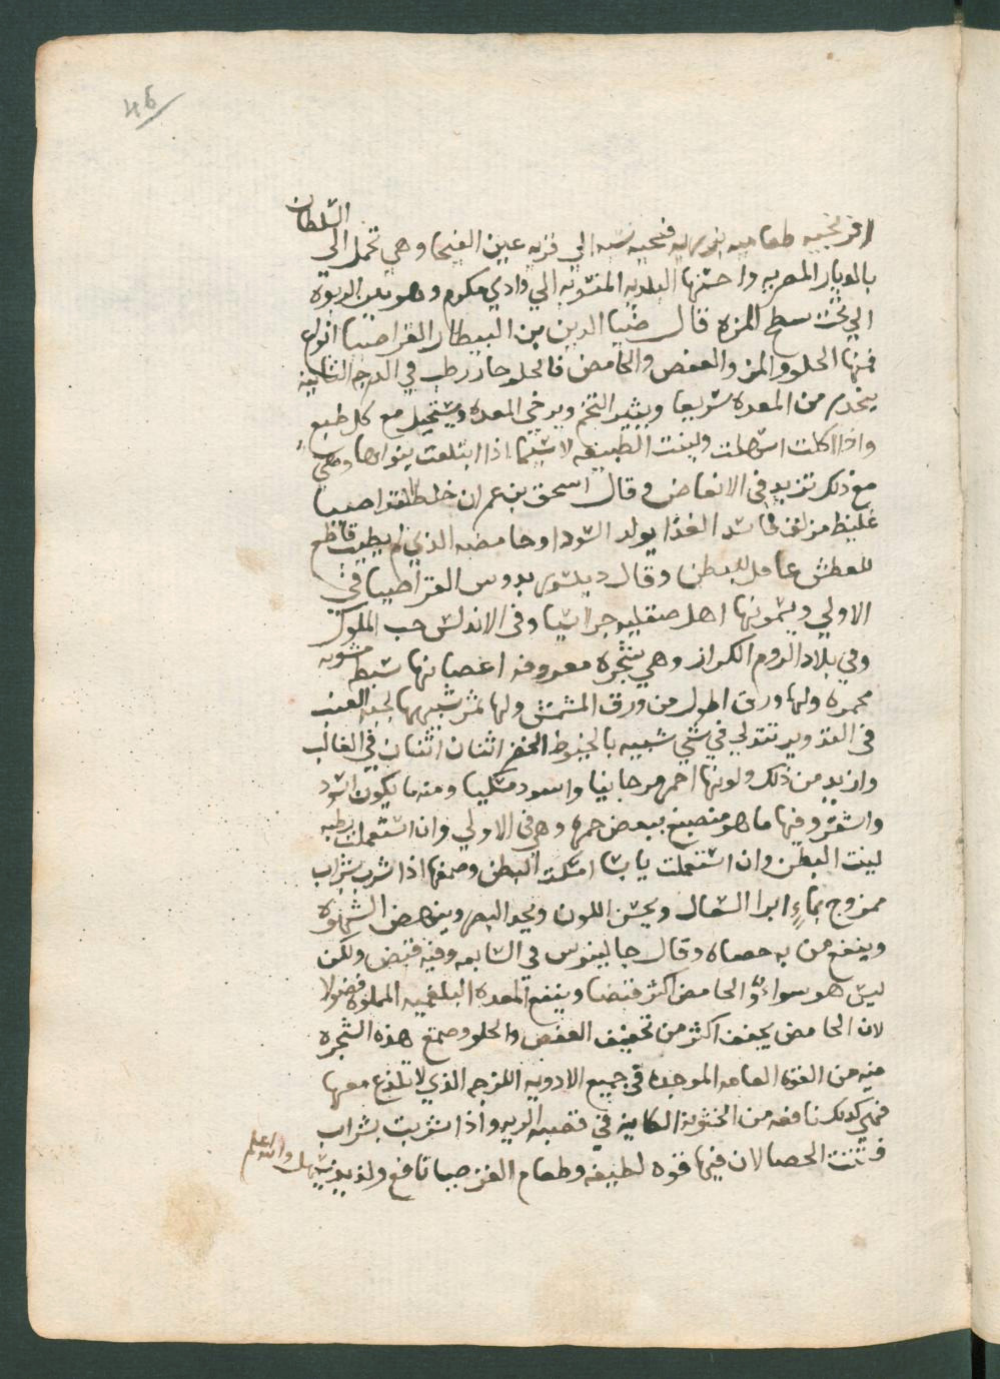 46
السلطان
افرنجيه طعاميه فيحيه نسبه الي قريه عين الفيجا وهي تحمل الي
بالديار المصريه واحسنها البلديه المنسوبه الي وادي وهو بين الربوه
الي تحت سطح المزه قال ضيا الدين بن البيطار القراصيا انواع
فمنها الحلو والمز والعفص والحامض فالحلو حار رطب في الدرجه الثانيه
ينحدر من المعده سريعا ويثير التخم ويرخي المعده ويستحيل مع كل طبع
واذا اكلت اسهلت ولينت الطبيعه لا سيما اذا ابتلعت بنواها وهي
مع ذلك تزيد في الانعاض وقال اسحق بن عمران خلط القراصيا
غليظ مزلق فاسد الغذا يولد السودا وحامضه الذي لم يطيب قاطع
للعطش عاقل للبطن وقال ديسقوريدوس القراصيا في
الاولي ويسمونها اهل صقليه جراسيا وفي الاندلس حب الملوك
وفي بلاد الروم الكراز وهي شجره معروفه اغصانها سبطه مشوبه
بحمره ولها ورق اطول من ورق المشمش ولها ثمر شبيهها بحبه العنب
في التدوير تتدلي في شي شبيه بالخيوط الخضر اثنان اثنان في الغالب
وازيد من ذلك ولونها احمر مرجانيا واسود مسكيا ومنه ما يكون اسود
واشقر وفيها ما هو منصبغ ببعض حمره وهي في الاولي وان استعملت رطبه
لينت البطن وان استعملت يابسا امسكت البطن وصمغها اذا شرب بشراب
ممزوج بماءٍ ابرا السعال ويحسن اللون ويحد البصر وينهض الشهوه
وينفع من به حصاه وقال جالينوس في السابعه وفيه قبض ولكن
ليس هو سواء الحامض اكثر قبضا وينفع المعده البلغميه المملوه فضولا
لان الحامض يجفف اكثر من تجفيف العفص والحلو وصمغ هذه الشجره
فيه من القوه العامه الموجده في جميع الادويه اللزجه الذي لا تلذع معها
فهي كذلك نافعه من الخشونه الكاينه في قصبه الريه واذا شربت بشراب
فتتت الحصا لان فيها قوه لطيفه وطعام القرصيا نافع ولذيذ يسهل والله اعلم